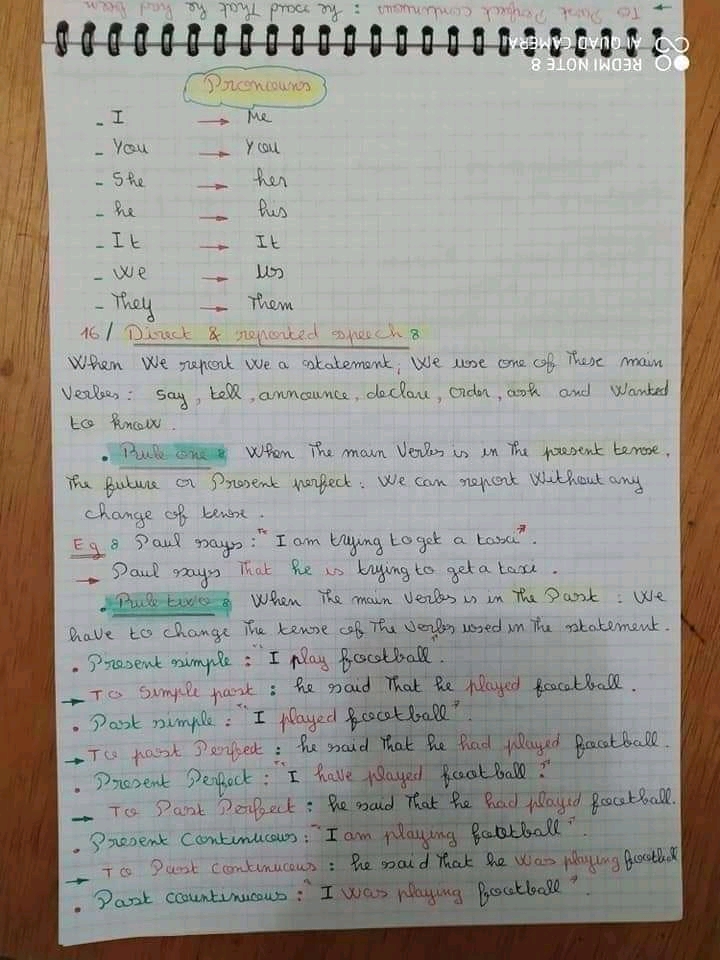 → To Past Perfect continuous : he said That he had been
REDMI NOTE 8
AI QUAD CAMERA
Pronouns
- I → Me
- You → You
- She → her
- he → his
- It → It
- We → us
- They → Them
16/ Direct & reported speech :
When We report We a statement, We use one of These main
Verbes : say, tell, announce, declare, order, ask and Wanted
to know.
• Rule one : When The main Verbes is in The present tense,
The future or Present perfect : We can report Without any
change of tense.
Eg : Paul says : "I am trying to get a taxi".
→ Paul says That he is trying to get a taxi.
• Rule two : When The main Verbes is in The Past : We
have to change The tense of The Verbes used in The statement.
• Present simple : "I play football".
→ To Simple past : he said That he played football.
• Past simple : "I played football".
→ To past Perfect : he said That he had played football.
• Present Perfect : "I have played football".
→ To Past Perfect : he said That he had played football.
• Present Continuous : "I am playing football".
→ To Past continuous : he said That he was playing football
• Past countinuous : "I was playing football".